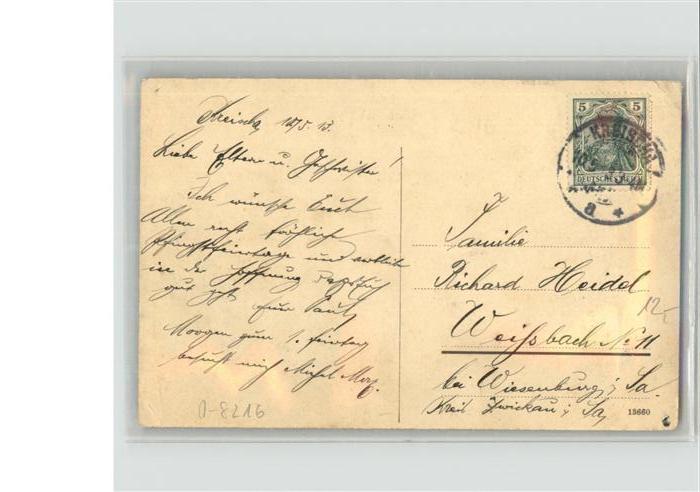 Kreischa, 10/5. 13.
Liebe Eltern u. Geschwister!
Ich wünsche Euch
Allen recht fröhliche
Pfingstfeiertage und verbleibe
in der Hoffnung daß es Euch
gut geht Euer Paul,
Morgen zum 1. Feiertag
besucht mich Michel Max.
5 5
DEUTSCHES REICH
KREISCHA
a *
Familie
Richard Heidel
Weißbach No 11
bei Wiesenburg i. Sa.
Kreis Zwickau i. Sa,
12,-
0-8216
13660